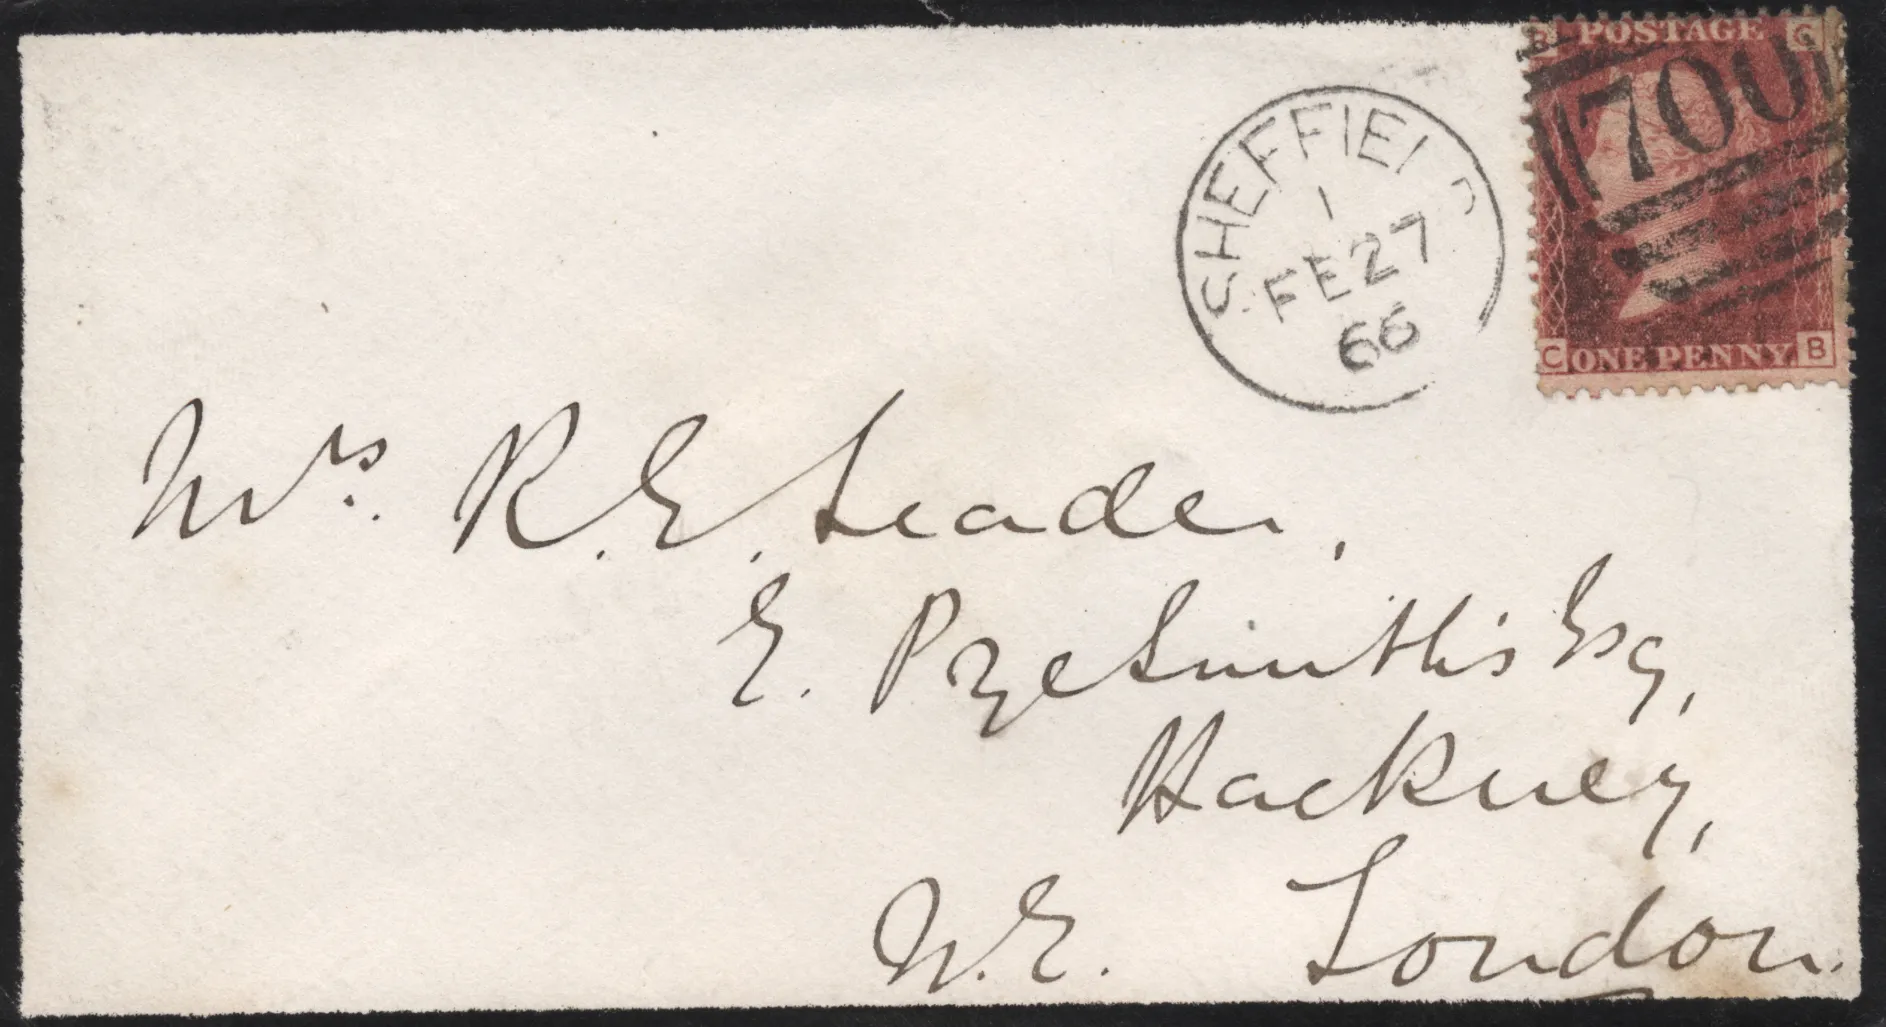 POSTAGE
B C
700
SHEFFIELD
1
FE 27
66
C ONE PENNY B
Mrs. R. E. Leader,
E. Pye Smith's Esq,
Hackney,
N.E. London.